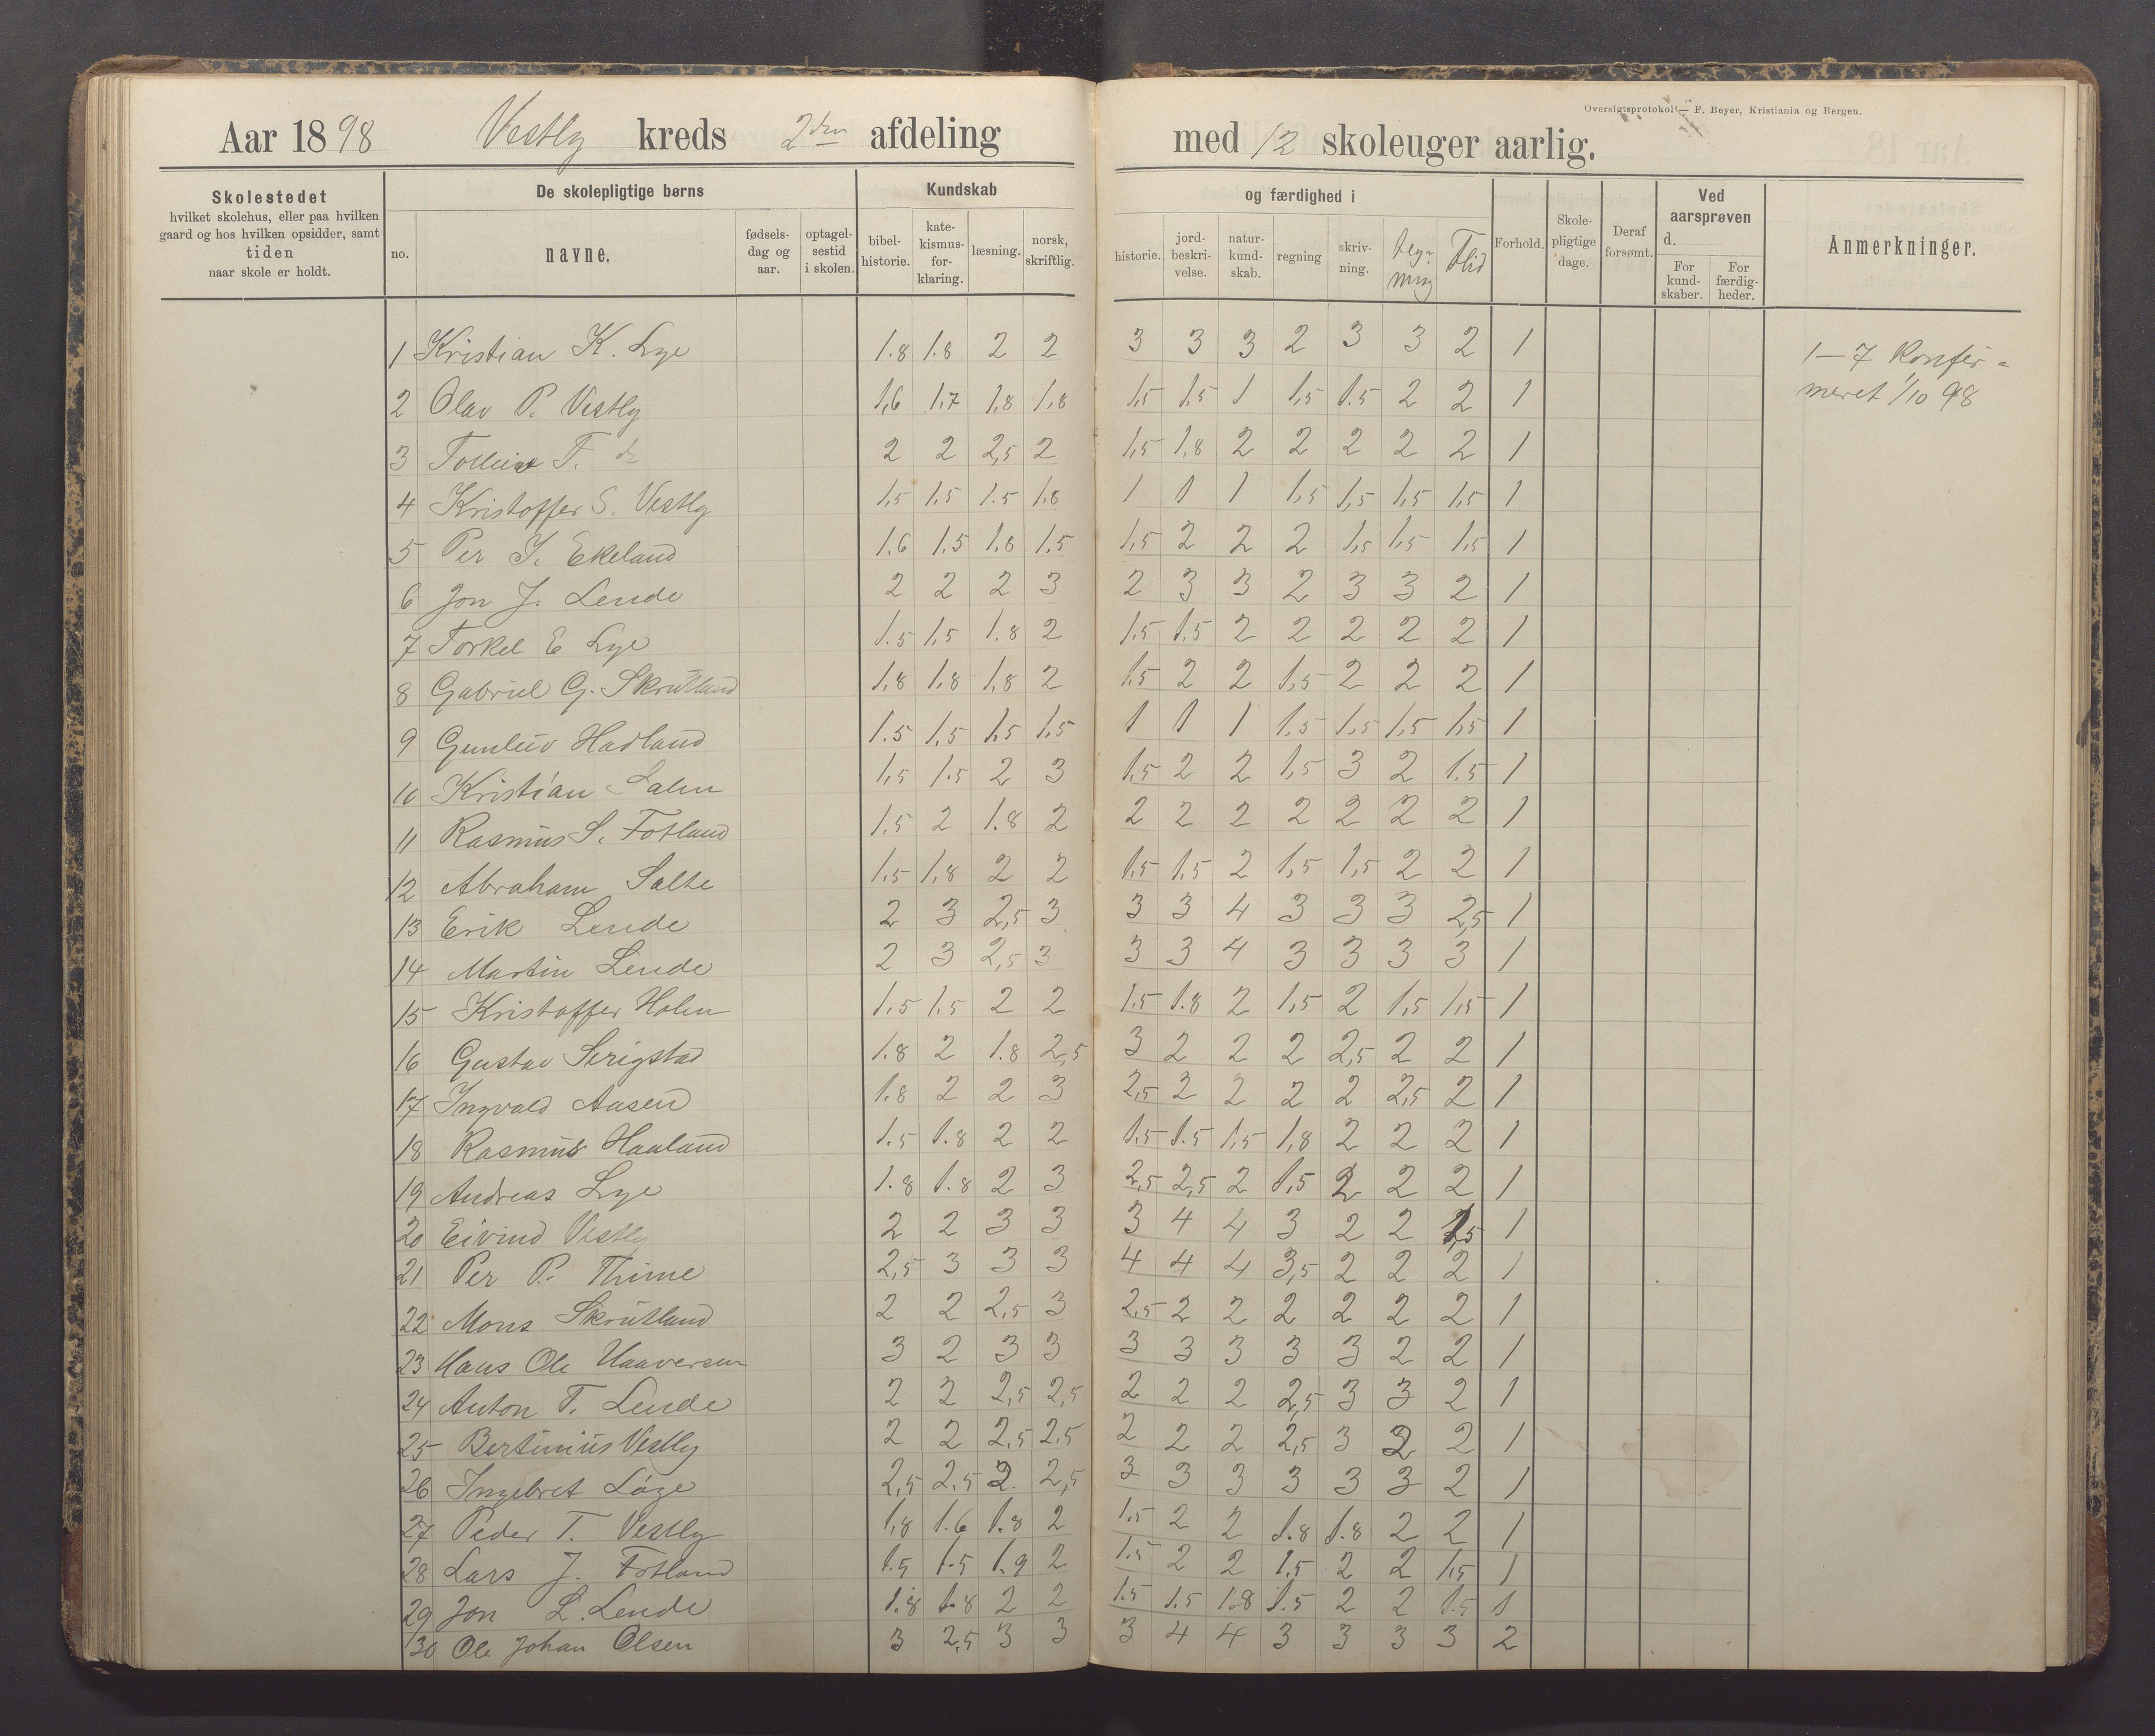 Oversigtsprotokol — F. Beyer, Kristiania og Bergen.
Aar 1898 Vestly kreds 2den afdeling med 12 skoleuger aarlig.
Skolestedet hvilket skolehus, eller paa hvilken gaard og hos hvilken opsidder, samt tiden naar skole er holdt.
De skolepligtige børns
no. navne. fødsels-dag og aar. optagel-sestid i skolen.
Kundskab og færdighed i
bibel-historie. kate-kismus-for-klaring. læsning. norsk, skriftlig. historie. jord-beskri-velse. natur-kund-skab. regning skriv-ning. Flid Forhold. Skole-pligtige dage. Deraf forsømt.
Ved aarsprøven d. For kund-skaber. For færdig-heder.
Anmerkninger.
1 Kristian K. Lye 1.8 1.8 2 2 3 3 3 2 3 3 2 1 1—7 Konfir-
2 Olav P. Vestly 1,6 1,7 1,8 1,8 1,5 1.5 1 1,5 1.5 2 2 1 meret 1/10 98
3 T. do 2 2 2,5 2 1,5 1,8 2 2 2 2 2 1
4 Kristoffer S. Vestly 1,5 1,5 1.5 1,8 1 1 1 1,5 1,5 1,5 1,5 1
5 Per J. Ekeland 1.6 1.5 1.8 1.5 1,5 2 2 2 1,5 1,5 1,5 1
6 Jon J. Lende 2 2 2 3 2 3 3 2 3 3 2 1
7 Torkel E Lye 1.5 1,5 1.8 2 1,5 1.5 2 2 2 2 2 1
8 Gabriel G. Skrutland 1,8 1,8 1,8 2 1,5 2 2 1,5 2 2 2 1
9 Gunleiv Hadland 1.5 1,5 1,5 1,5 1 1 1 1,5 1,5 1,5 1,5 1
10 Kristian Salen 1,5 1.5 2 3 1,5 2 2 1,5 3 2 1.5 1
11 Rasmus S. Fotland 1,5 2 1.8 2 2 2 2 2 2 2 2 1
12 Abraham Salte 1,5 1,8 2 2 1,5 1,5 2 1,5 1,5 2 2 1
13 Erik Lende 2 3 2,5 3 3 3 4 3 3 3 2,5 1
14 Martin Lende 2 3 2,5 3 3 3 4 3 3 3 3 1
15 Kristoffer Holen 1,5 1,5 2 2 1,5 1.8 2 1,5 2 1,5 1,5 1
16 Gustav Serigstad 1.8 2 1.8 2,5 3 2 2 2 2,5 2 2 1
17 Ingvald Aasen 1.8 2 2 3 2,5 2 2 2 2 2,5 2 1
18 Rasmus Haaland 1.5 1.8 2 2 1,5 1.5 1,5 1,8 2 2 2 1
19 Andreas Lye 1.8 1.8 2 3 2,5 2,5 2 1,5 2 2 2 1
20 Eivind Vestly 2 2 3 3 3 4 4 3 2 2 1,5 1
21 Per P. Thime 2,5 3 3 3 4 4 4 3,5 2 2 2 1
22 Mons Skrutland 2 2 2,5 3 2,5 2 2 2 2 2 2 1
23 Hans Ole Haaversen 3 2 3 3 3 3 3 3 3 2 2 1
24 Anton T. Lende 2 2 2,5 2,5 2 2 2 2,5 3 3 2 1
25 Bertinius Vestly 2 2 2,5 2.5 2 2 2 2,5 3 2 2 1
26 Ingebret Løge 2,5 2.5 2 2,5 3 3 3 3 3 3 2 1
27 Peder T. Vestly 1,8 1.6 1.8 2 1.5 2 2 1.8 1.8 2 2 1
28 Lars J. Fotland 1.5 1.5 1.9 2 1.5 2 2 1,5 2 2 1,5 1
29 Jon L. Lende 1.8 1.8 2 2 1.5 1.5 1.8 1.5 2 2 1.5 1
30 Ole Johan Olsen 3 2,5 3 3 3 4 4 3 3 3 3 2